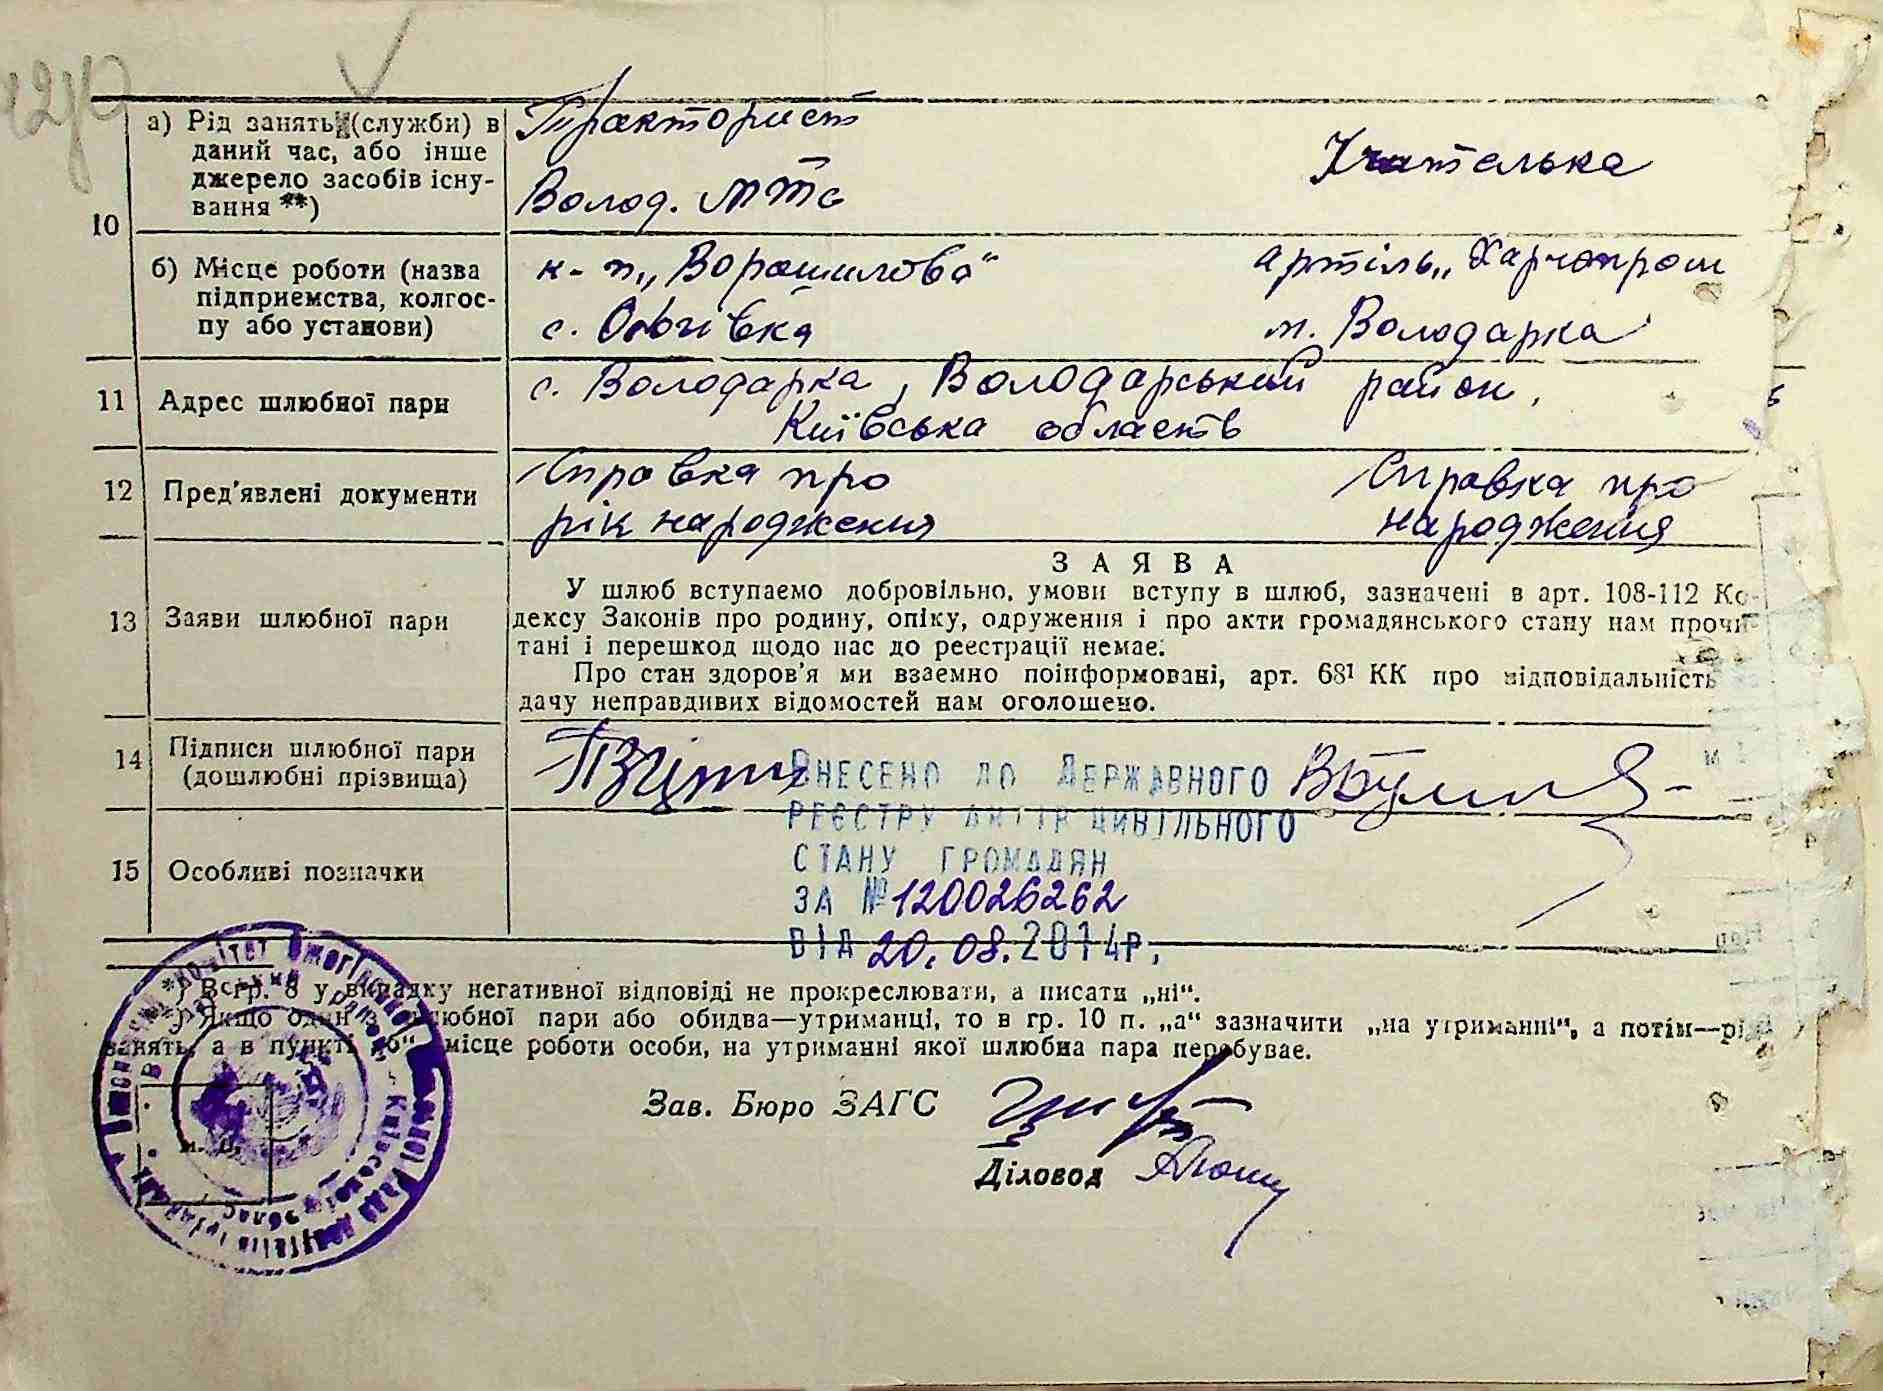 10
а) Рід занять (служби) в
даний час, або інше
джерело засобів існу-
вання **)
Тракторист
Волод. МТС
Учителька
б) Місце роботи (назва
підприємства, колгос-
пу або установи)
к-п „Ворошилова“
с. Ольгівка
артіль „Харчопром
м. Володарка
11 Адрес шлюбної пари
с. Володарка, Володарський район,
Київська область
12 Пред'явлені документи
Справка про
рік народження
Справка про
народження
13 Заяви шлюбної пари
ЗАЯВА
У шлюб вступаемо добровільно, умови вступу в шлюб, зазначені в арт. 108-112 Ко-
дексу Законів про родину, опіку, одруження і про акти громадянського стану нам прочи-
тані і перешкод щодо нас до реєстрації немає.
Про стан здоров'я ми взаемно поінформовані, арт. 68¹ КК про відповідальність
дачу неправдивих відомостей нам оголошено.
14 Підписи шлюбної пари
(дошлюбні прізвища)
15 Особливі позначки
Внесено до Державного
реєстру актів цивільного
стану громадян
за №120026262
від 20.08.2014р.
*) В гр. 8 у випадку негативної відповіді не прокреслювати, а писати „ні“.
Якщо один з шлюбної пари або обидва—утриманці, то в гр. 10 п. „а“ зазначити „на утриманні“, а потім—рід
занять, а в пункті „б“ місце роботи особи, на утриманні якої шлюбна пара перебуває.
Зав. Бюро ЗАГС
Діловод
м. п.